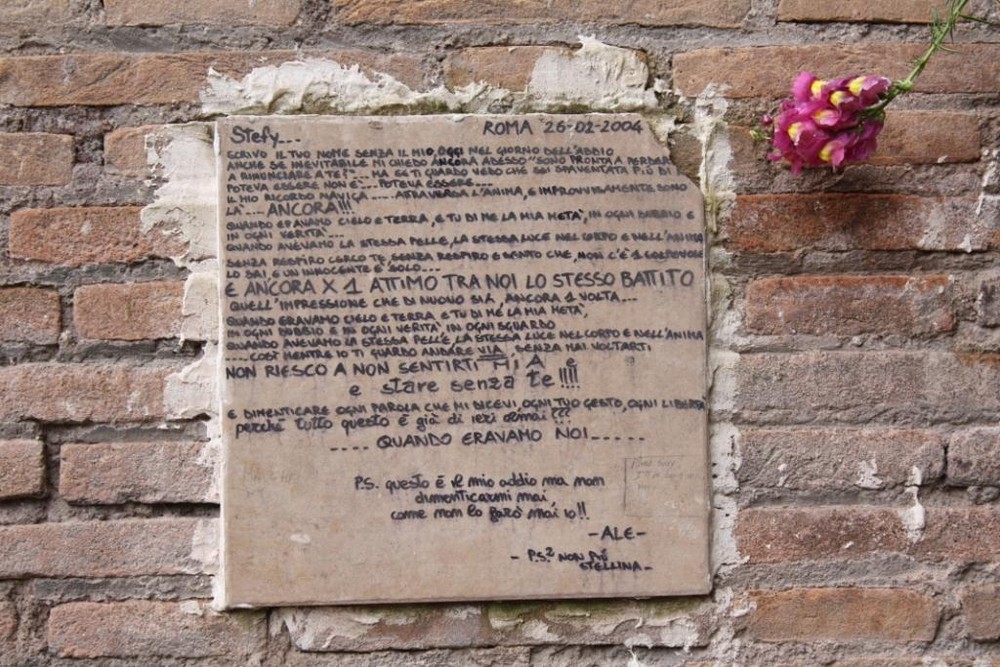 Stefy... ROMA 26-02-2004
SCRIVO IL TUO NOME SENZA IL MIO, OGGI NEL GIORNO DELL'ADDIO
ANCHE SE INEVITABILE MI CHIEDO ANCORA ADESSO "SONO PRONTA A PERDERE
A RINUNCIARE A TE?"... MA SE TI GUARDO VEDO CHE SEI SPAVENTATA PIÙ DI
POTEVA ESSERE NON È... POTEVA ESSERE....
IL MIO RICORDO NAVIGA ..... ATTRAVERSA L'ANIMA, E IMPROVVISAMENTE SONO
LÀ .... ANCORA!!!
QUANDO ERAVAMO CIELO E TERRA, E TU DI ME LA MIA METÀ, IN OGNI DUBBIO E
IN OGNI VERITÀ ...
QUANDO AVEVAMO LA STESSA PELLE, LA STESSA LUCE NEL CORPO E NELL'ANIMA
SENZA RESPIRO CERCO TE, SENZA RESPIRO E SANTO CHE, NON C'È 1 COLPEVOLE
LO SAI, E UN INNOCENTE È SOLO....
E ANCORA X 1 ATTIMO TRA NOI LO STESSO BATTITO
QUELL'IMPRESSIONE CHE DI NUOVO SIA, ANCORA 1 VOLTA....
QUANDO ERAVAMO CIELO E TERRA E TU DI ME LA MIA METÀ,
IN OGNI DUBBIO E IN OGNI VERITÀ, IN OGNI SGUARDO
QUANDO AVEVAMO LA STESSA PELLE, LA STESSA LUCE NEL CORPO E NELL'ANIMA
.... COSÌ MENTRE IO TI GUARDO ANDARE VIA, SENZA MAI VOLTARTI
NON RIESCO A NON SENTIRTI MIA e
e stare senza te!!!!
E DIMENTICARE OGNI PAROLA CHE MI DICEVI, OGNI TUO GESTO, OGNI
perché tutto questo è già di ieri ormai???
.... QUANDO ERAVAMO NOI.....
P.S. questo è il mio addio ma non
dimenticarmi mai,
come non lo farò mai io!!
-ALE-
- P.S.² NON PIÙ
STELLINA-